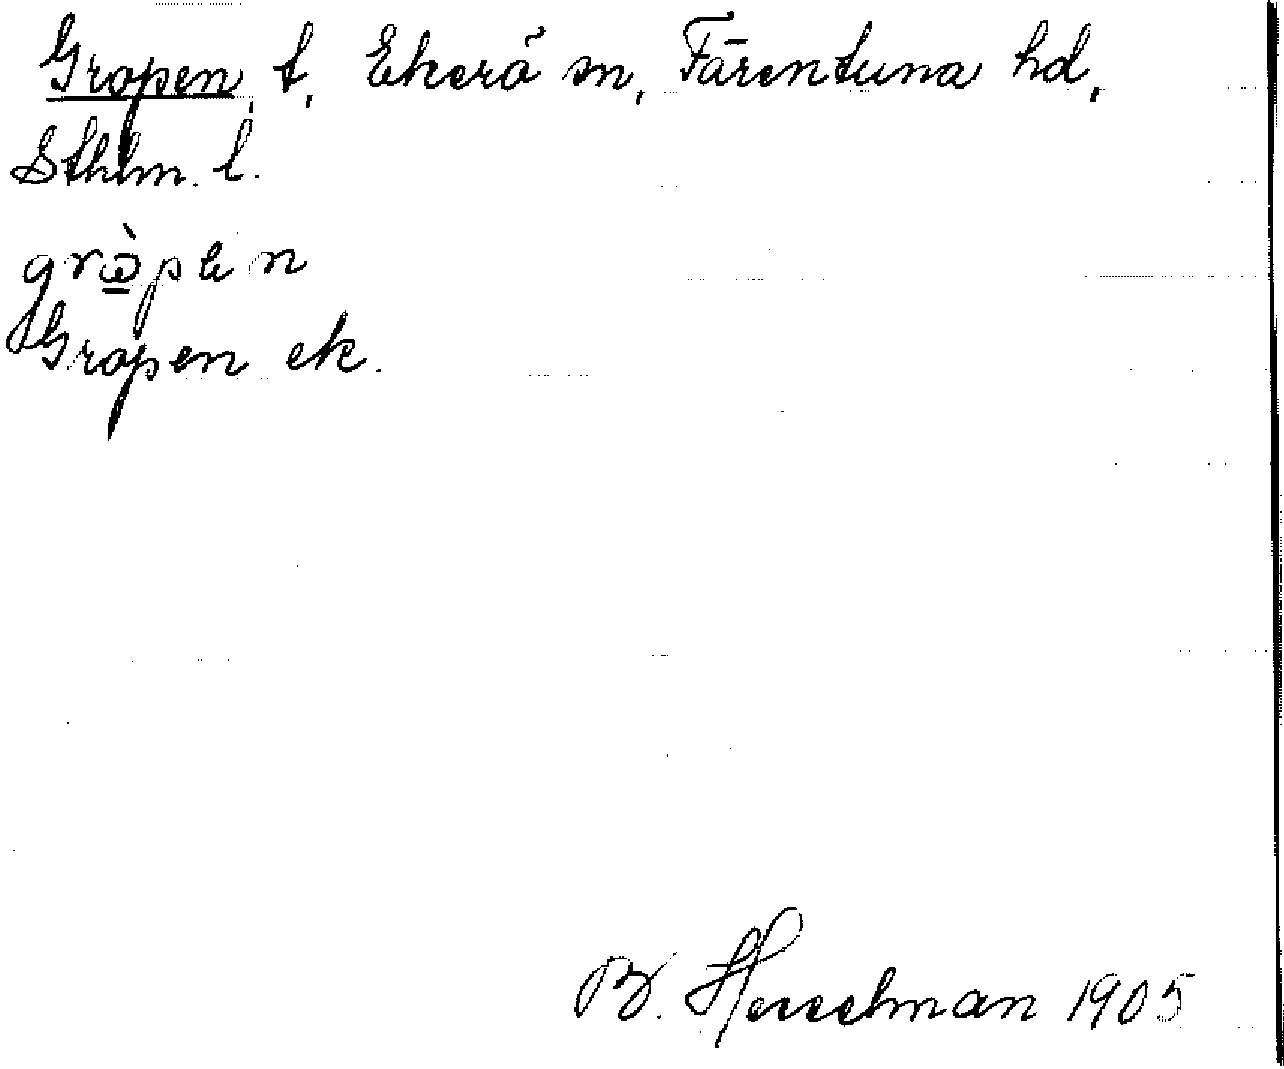 Gropen t, Ekerö sn, Färentuna hd,
Sthlm. l.
grɷ̠̀pen
Gropen ek.
B. Hesselman 1905